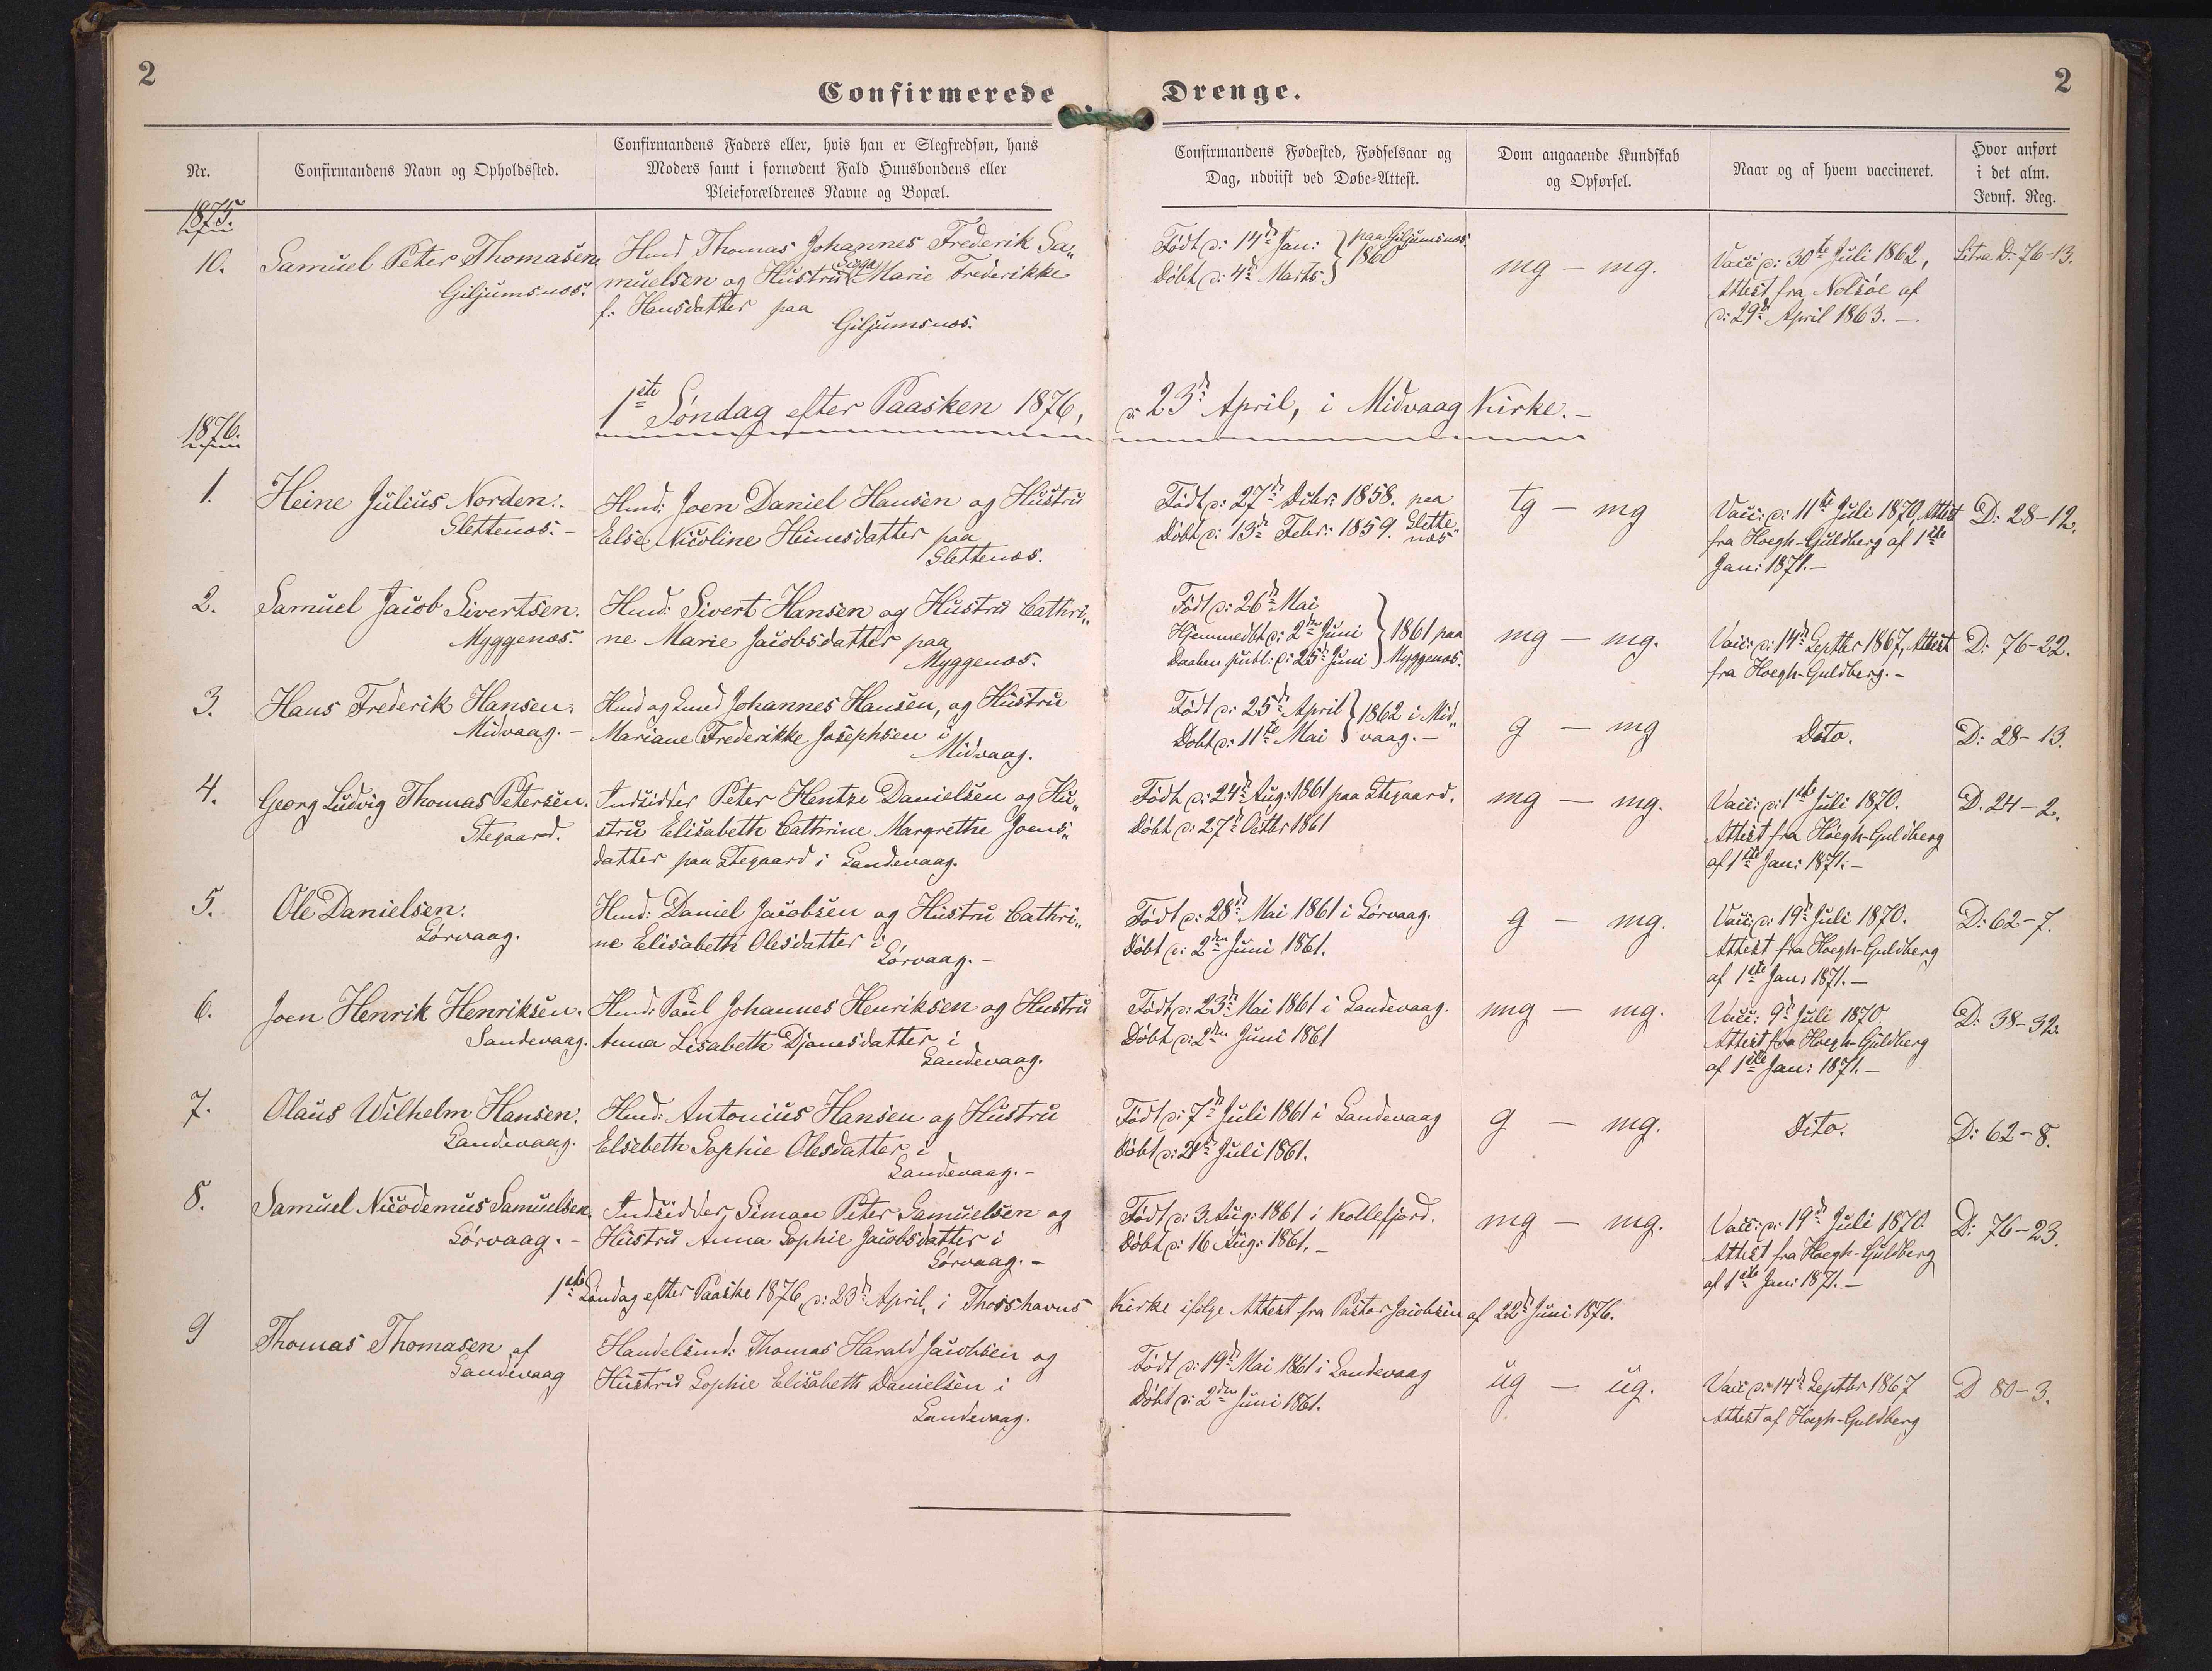 2
Confirmerede Drenge.
2
Nr.
Confirmandens Navn og Opholdssted.
Confirmandens Faders eller, hvis han er Slegfredsøn, hans
Moders samt i fornødent Fald Huusbondens eller
Pleieforældrenes Navne og Bopæl.
Confirmandens Fødested, Fødselsaar og
Dag, udviist ved Døbe-Attest.
Dom angaaende Kundskab
og Opførsel.
Naar og af hvem vaccineret.
Hvor anført
i det alm.
Jevnf. Reg.
1875.
10.
Samuel Peter Thomasen
Giljumsnæs.
Hmd Thomas Johannes Frederik Sa„
muelsen og Hustru Marie Frederikke
f. Hansdatter paa
Giljumsnæs.
Født d: 14d Jan: } paa Giljumsnæs.
Døbt d: 4d Marts } 1860
mg — mg.
Vacc d: 30te Juli 1862,
Attest fra Nolsøe af
d: 29d April 1863. —
Litra D: 76-13.
1ste Søndag efter Paasken 1876, d: 23d April, i Midvaag Kirke. —
1876.
1.
Heine Julius Norden:
Slettenæs. —
Hmd: Joen Daniel Hansen og Hustru
Else Nicoline Heinesdatter paa
Slettenæs.
Født d: 27d Decbr: 1858. paa
Døbt d: 13d Febr: 1859. Slette„
næs
tg — mg
Vacc: d: 11te Juli 1870, Attest
fra Hoegh-Guldberg af 1ste
Jan: 1871. —
D: 28-12.
2.
Samuel Jacob Sivertsen.
Myggenæs.
Hmd: Sivert Hansen og Hustru Cathri„
ne Marie Jacobsdatter paa
Myggenæs.
Født d: 26d Mai
Hjemmedbt d: 2den Juni } 1861 paa
Daaben publ: d: 25d Juni } Myggenæs.
mg — mg.
Vacc: d: 14d Septbr 1867, Attest
fra Hoegh-Guldberg. —
D: 76-22.
3.
Hans Frederik Hansen.
Midvaag. —
Hmd og Johannes Hansen, og Hustru
Mariane Frederikke Josephsen i
Midvaag.
Født d: 25d April } 1862 i Mid„
Døbt d: 11te Mai } vaag. —
g — mg
Dito.
D: 28-13.
4.
Georg Ludvig Thomas Petersen.
Stegaard.
Indsidder Peter Hentze Danielsen og Hu„
stru Elisabeth Cathrine Margrethe Joens„
datter paa Stegaard i Sandevaag.
Født d: 24d Aug: 1861 paa Stegaard.
Døbt d: 27d Octbr 1861
mg — mg.
Vacc: d: 1ste Juli 1870.
Attest fra Hoegh-Guldberg
af 1ste Jan: 1871. —
D. 24-2.
5.
Ole Danielsen.
Sørvaag.
Hmd: Daniel Jacobsen og Hustru Cathri„
ne Elisabeth Olesdatter i
Sørvaag. —
Født d: 28d Mai 1861 i Sørvaag.
Døbt d: 2den Juni 1861.
g — mg.
Vacc: d: 19d Juli 1870.
Attest fra Hoegh-Guldberg
af 1ste Jan: 1871. —
D: 62-7.
6.
Joen Henrik Henriksen.
Sandevaag.
Hmd: Paul Johannes Henriksen og Hustru
Anna Lisabeth Djonesdatter i
Sandevaag.
Født d: 23d Mai 1861 i Sandevaag.
Døbt d: 2den Juni 1861
mg — mg.
Vacc: 9d Juli 1870.
Attest fra Hoegh-Guldberg
af 1ste Jan: 1871. —
D: 38-32.
7.
Olaus Wilhelm Hansen.
Sandevaag.
Hmd: Antonius Hansen og Hustru
Elsebeth Sophie Olesdatter i
Sandevaag. —
Født d: 7d Juli 1861 i Sandevaag
Døbt d: 21d Juli 1861.
g — mg.
Dito.
D: 62-8.
8.
Samuel Nicodemus Samuelsen.
Sørvaag. —
Indsidder Simon Peter Samuelsen og
Hustru Anna Sophie Jacobsdatter i
Sørvaag. —
Født d: 3 Aug: 1861 i Kollefjord.
Døbt d: 16 Aug: 1861. —
mg — mg.
Vacc: d: 19d Juli 1870.
Attest fra Hoegh-Guldberg
af 1ste Jan: 1871. —
D: 76-23.
1ste Søndag efter Paaske 1876, d: 23d April, i Thorshavns Kirke ifølge Attest fra Pastor Jacobsen af 22d Juni 1876.
9
Thomas Thomasen af
Sandevaag
Handelsmd: Thomas Harald Jacobsen og
Hustru Sophie Elisabeth Danielsen i
Sandevaag.
Født d: 19d Mai 1861 i Sandevaag
Døbt d: 2den Juni 1861.
ug — ug.
Vacc d: 14d Septbr 1867
Attest af Hoegh-Guldberg
D 80-3.